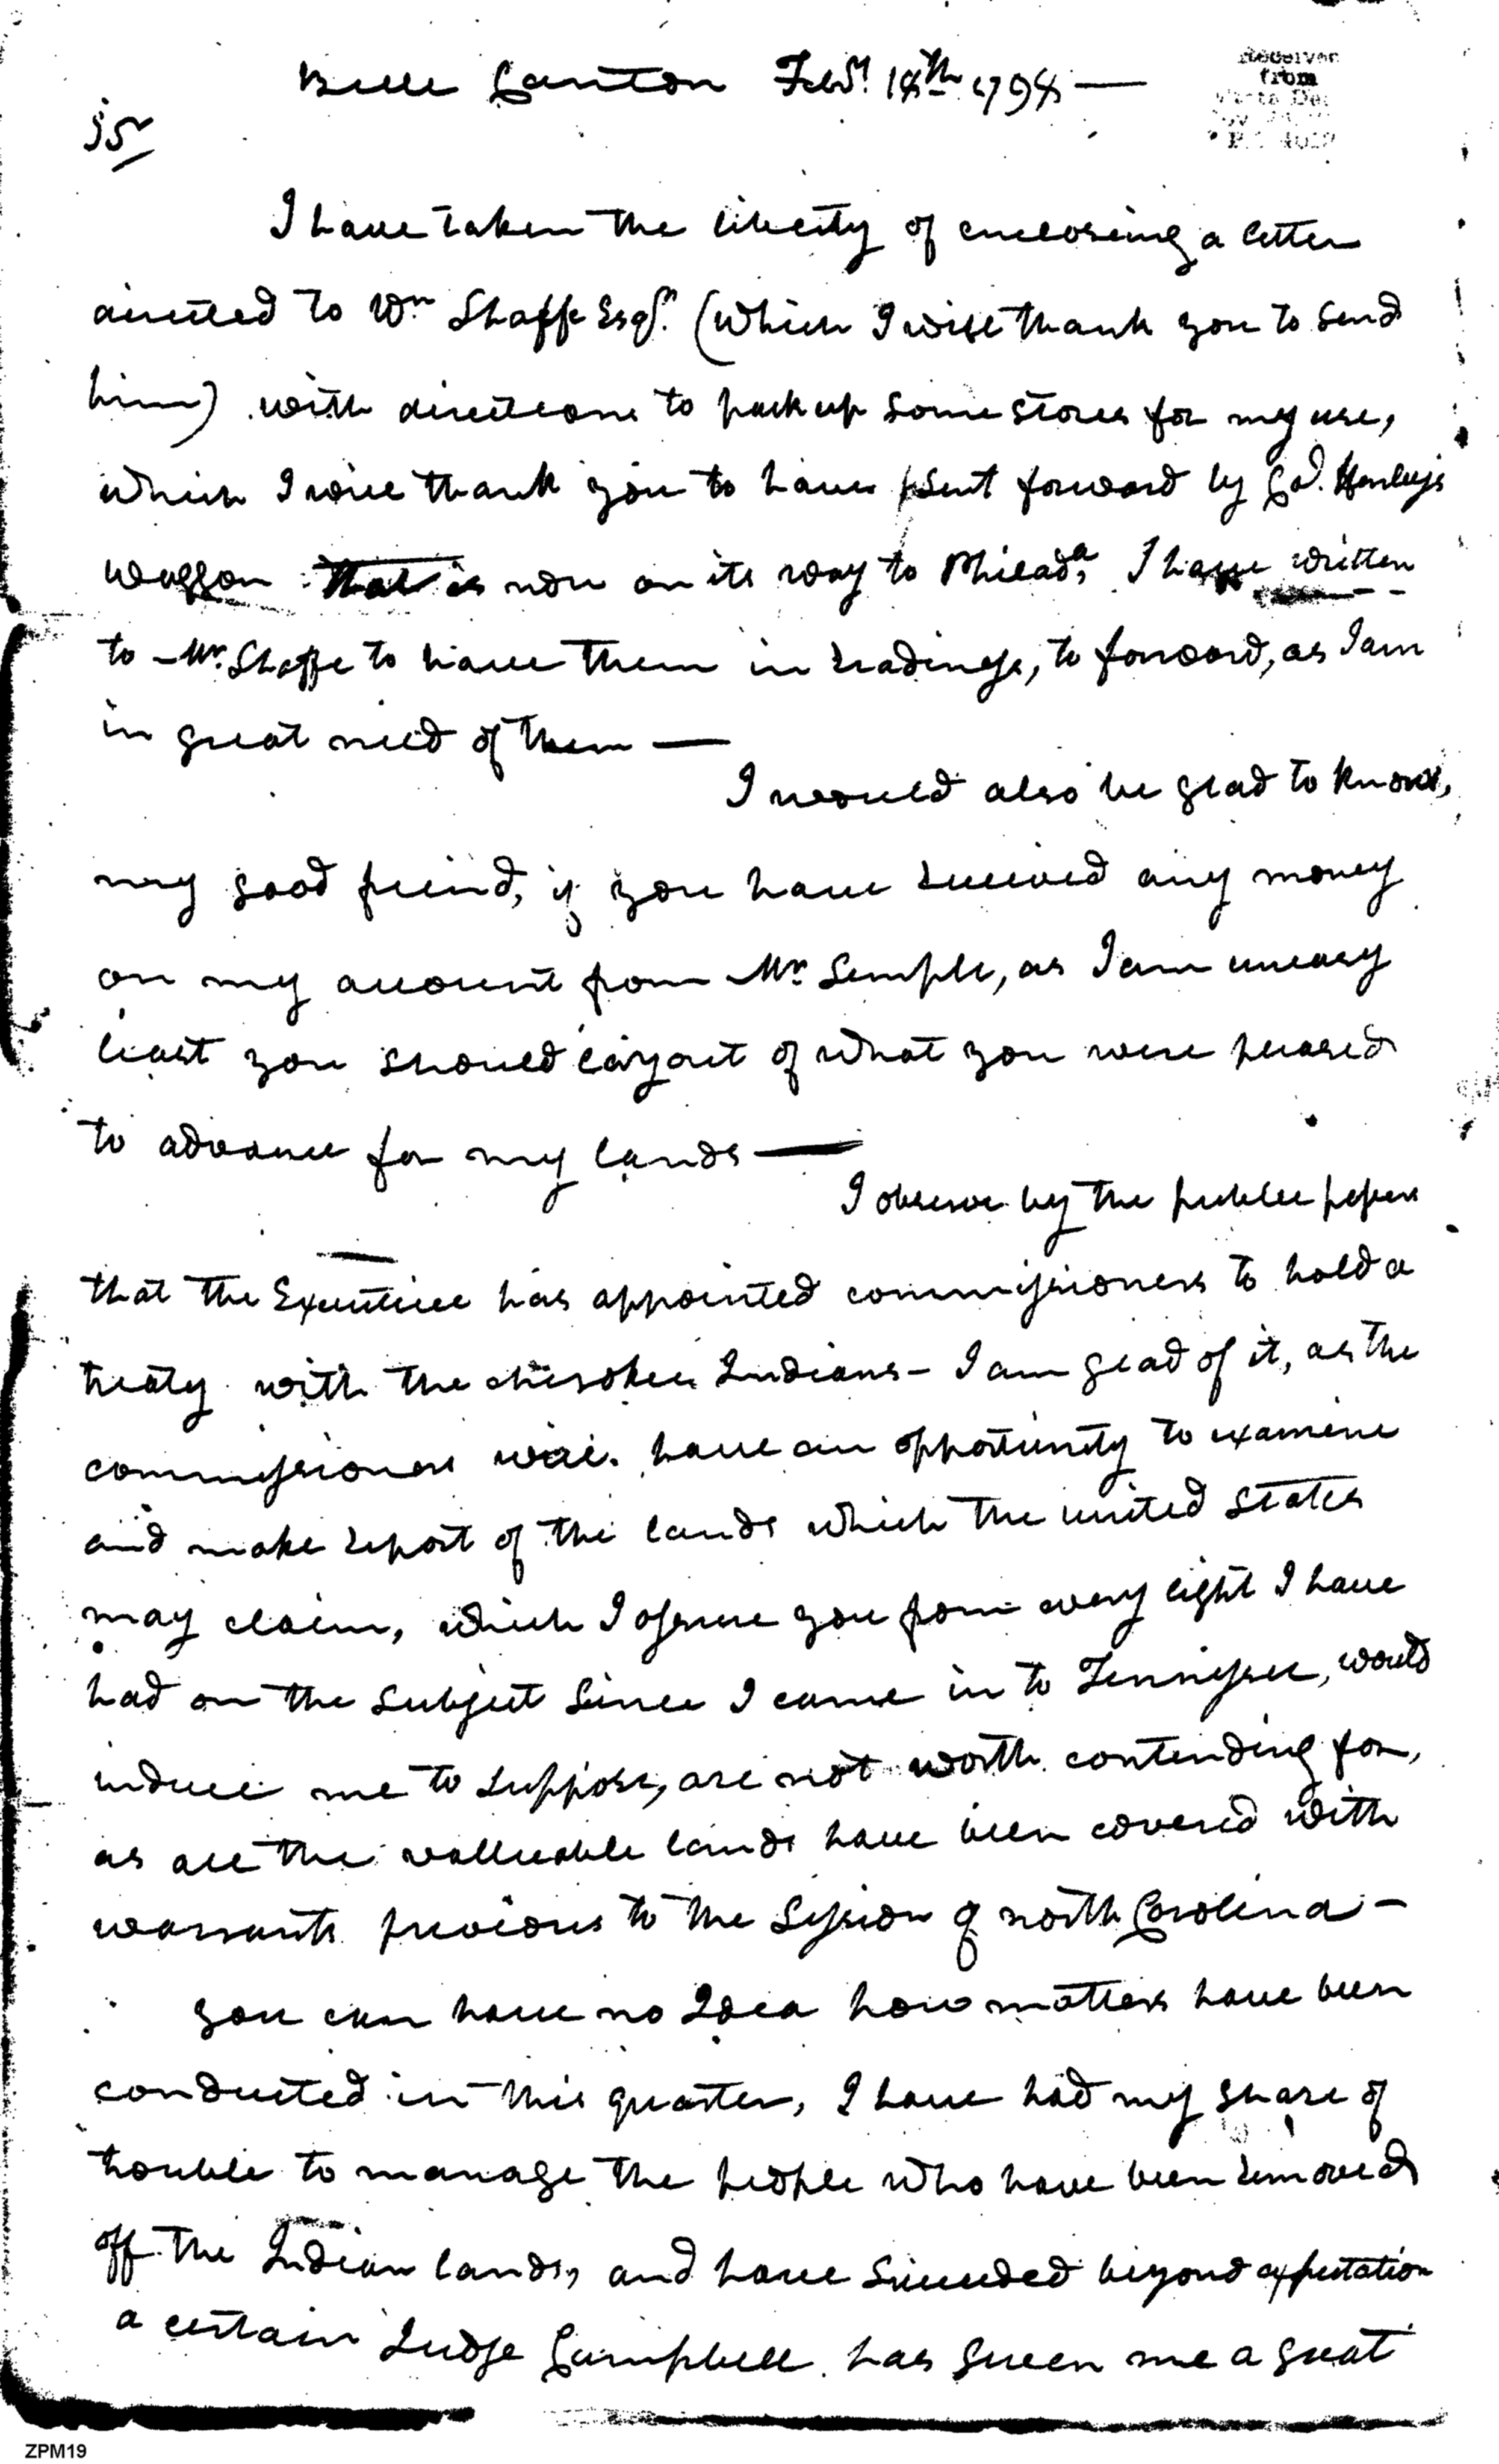 Belle Canton Feby. 18th 1798 —
Received
from
Sir
I have taken the liberty of enclosing a letter
directed to Wm Shaffe Esqr. (which I will thank you to send
him) with directions to pack up some stores for my use,
which I will thank you to have sent forward by Col. Henleys
waggon that is now on its way to Philada, I have written
to Mr. Shaffe to have them in readiness, to forward, as I am
in great need of them —
I would also be glad to know,
my good friend, if you have received any money
on my account from Mr. Semple, as I am uneasy
least you should lay out of what you were pleased
to advance for my lands —
I observe by the public papers
that the Executive has appointed commissioners to hold a
treaty with the cherokee Indians – I am glad of it, as the
commissioners will have an opportunity to examine
and make report of the lands which the united states
may claim, which I assure you from every light I have
had on the subject since I came in to Tennessee, would
induce me to suppose, are not worth contending for,
as all the valluable lands have been covered with
warrants previous to the Session of north Carolina –
you can have no Idea how matters have been
conducted in this quarter, I have had my share of
trouble to manage the people who have been removed
off the Indian lands, and have succeeded beyond expectation
a certain Judge Campbell has given me a great
ZPM19